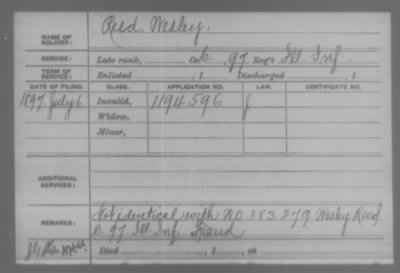 NAME OF SOLDIER: Reed, Wesley.
SERVICE: Late rank, Co. B, 97 Reg't Ill. Inf.
TERM OF SERVICE: Enlisted , 1 Discharged , 1
DATE OF FILING. CLASS. APPLICATION NO. LAW. CERTIFICATE NO.
1897. July 6 Invalid, 1194596 J
Widow,
Minor,
ADDITIONAL SERVICES:
REMARKS: Not identical with W.O. 383.279 Wesley Reed
B 97 Ill. Inf. Fraud
Died , 1 , at